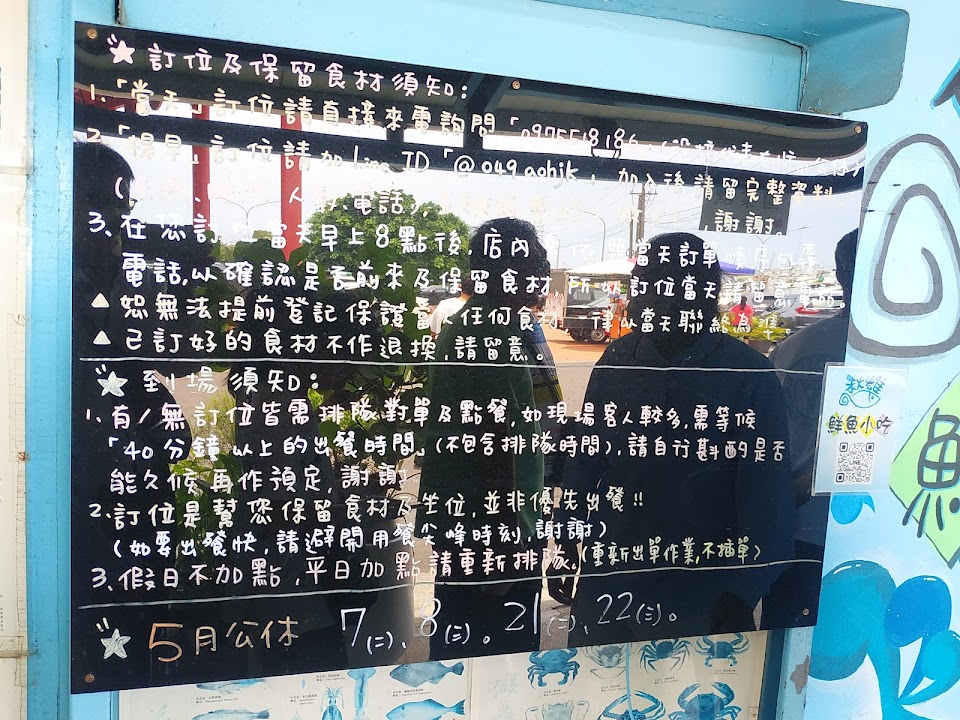 ★訂位及保留食材須知:
1.「當天」訂位請直接來電詢問「0975518186」
2.「提早」訂位請加Line ID「@049aohjk」加入後請留完整資料
人數、電話), 謝謝。
3.在您訂位當天早上8點後,店內 依照當天訂單順序回覆
電話,以確認是否前來及保留食材 所以訂位當天請留意電話。
▲恕無法提前登記保證當天任何食材,一律以當天聯絡為準。
▲已訂好的食材不作退換,請留意。
★到場須知:
1.有/無訂位皆需排隊對單及點餐,如現場客人較多,需等候
「40分鐘以上的出餐時間」(不包含排隊時間),請自行斟酌是否
能久候再作預定,謝謝
2.訂位是幫您保留食材及坐位,並非優先出餐!!
(如要出餐快,請避開用餐尖峰時刻,謝謝)
3.假日不加點,平日加點請重新排隊。(重新出單作業,不插單)
★5月公休 7(二)、8(三)。21(二)、22(三)。
秋媽
鮮魚小吃
LINE
魚